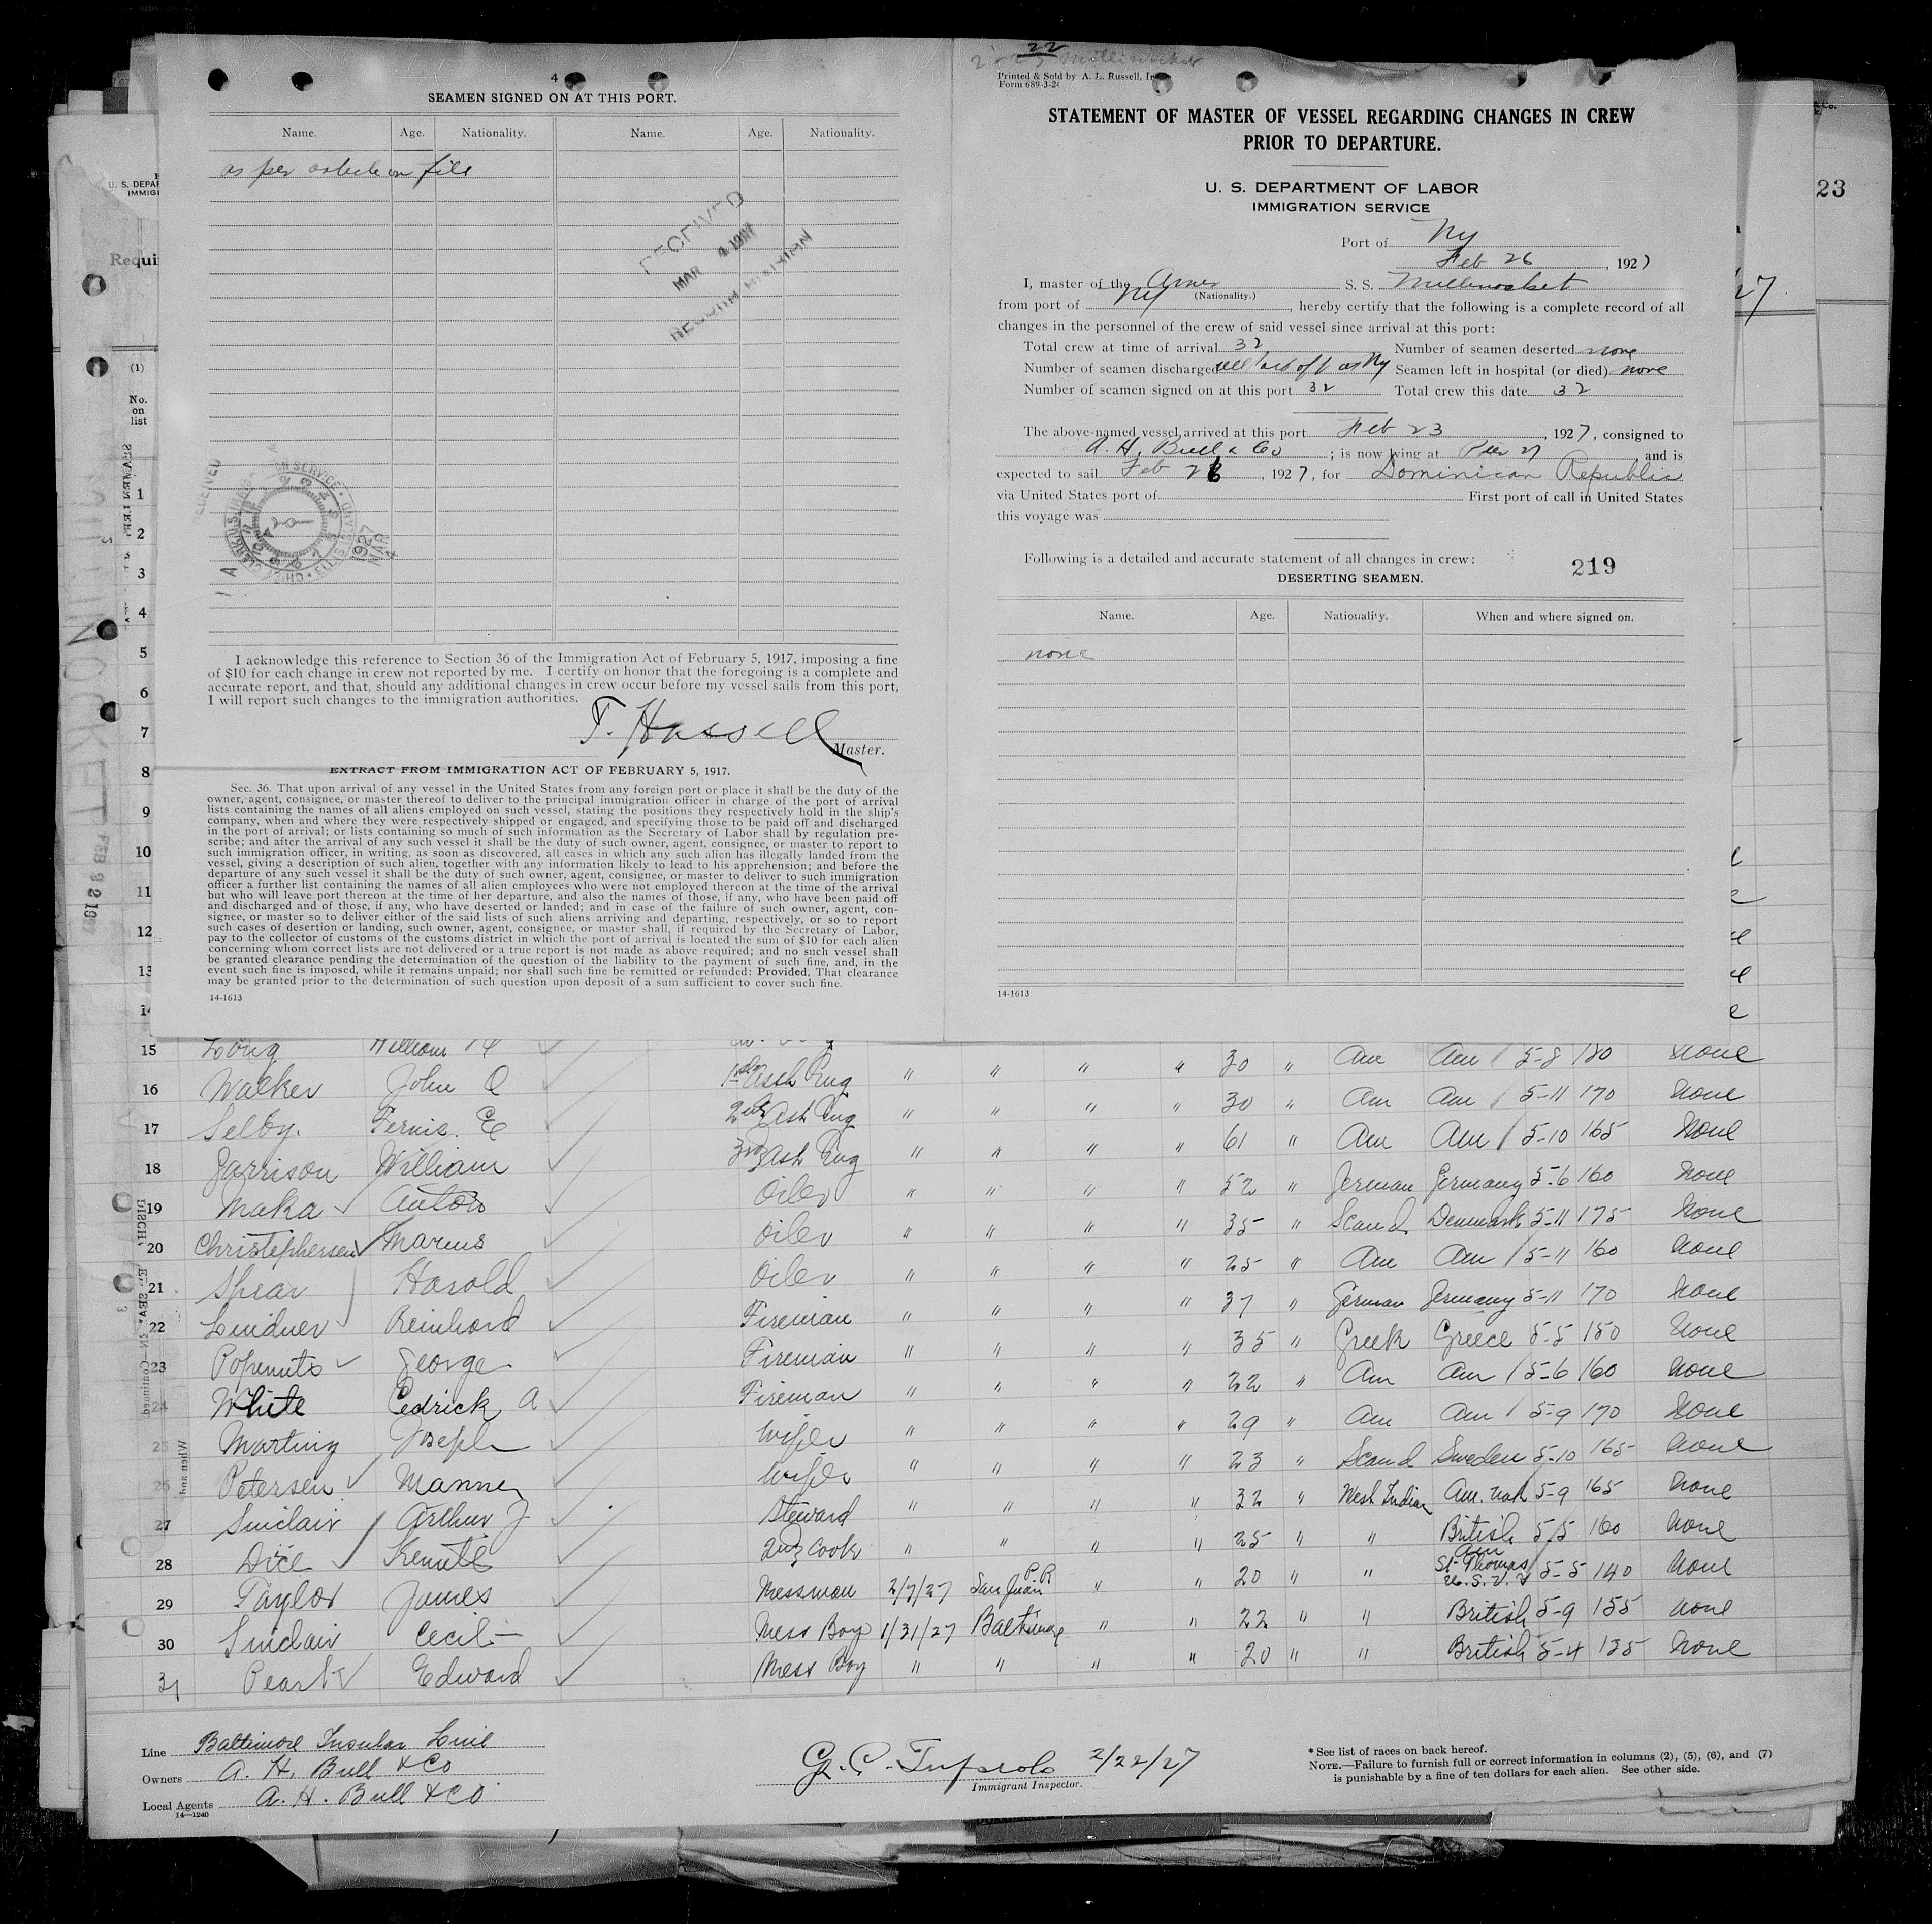 4
SEAMEN SIGNED ON AT THIS PORT.
Name. Age. Nationality. Name. Age. Nationality.
as per on file
RECEIVED
MAR 4 1927
RECORD DIVISION
I acknowledge this reference to Section 36 of the Immigration Act of February 5, 1917, imposing a fine
of $10 for each change in crew not reported by me. I certify on honor that the foregoing is a complete and
accurate report, and that, should any additional changes in crew occur before my vessel sails from this port,
I will report such changes to the immigration authorities.
T. Hassell
Master.
EXTRACT FROM IMMIGRATION ACT OF FEBRUARY 5, 1917.
Sec. 36. That upon arrival of any vessel in the United States from any foreign port or place it shall be the duty of the
owner, agent, consignee, or master thereof to deliver to the principal immigration officer in charge of the port of arrival
lists containing the names of all aliens employed on such vessel, stating the positions they respectively hold in the ship's
company, when and where they were respectively shipped or engaged, and specifying those to be paid off and discharged
in the port of arrival; or lists containing so much of such information as the Secretary of Labor shall by regulation pre-
scribe; and after the arrival of any such vessel it shall be the duty of such owner, agent, consignee, or master to report to
such immigration officer, in writing, as soon as discovered, all cases in which any such alien has illegally landed from the
vessel, giving a description of such alien, together with any information likely to lead to his apprehension; and before the
departure of any such vessel it shall be the duty of such owner, agent, consignee, or master to deliver to such immigration
officer a further list containing the names of all alien employees who were not employed thereon at the time of the arrival
but who will leave port thereon at the time of her departure, and also the names of those, if any, who have been paid off
and discharged and of those, if any, who have deserted or landed; and in case of the failure of such owner, agent, con-
signee, or master so to deliver either of the said lists of such aliens arriving and departing, respectively, or so to report
such cases of desertion or landing, such owner, agent, consignee, or master shall, if required by the Secretary of Labor,
pay to the collector of customs of the customs district in which the port of arrival is located the sum of $10 for each alien
concerning whom correct lists are not delivered or a true report is not made as above required; and no such vessel shall
be granted clearance pending the determination of the question of the liability to the payment of such fine, and, in the
event such fine is imposed, while it remains unpaid; nor shall such fine be remitted or refunded: Provided, That clearance
may be granted prior to the determination of such question upon deposit of a sum sufficient to cover such fine.
14-1613
22
Millinocket
Printed & Sold by A. L. Russell, In
Form 689-3-2
STATEMENT OF MASTER OF VESSEL REGARDING CHANGES IN CREW
PRIOR TO DEPARTURE.
U. S. DEPARTMENT OF LABOR
IMMIGRATION SERVICE
Port of Ny
Feb 26, 1927
I, master of the Amer S. S. Millinocket
from port of Ny (Nationality.), hereby certify that the following is a complete record of all
changes in the personnel of the crew of said vessel since arrival at this port:
Total crew at time of arrival 32 Number of seamen deserted none
Number of seamen discharged all off Ny Seamen left in hospital (or died) none
Number of seamen signed on at this port 32 Total crew this date 32
The above-named vessel arrived at this port Feb 23, 1927, consigned to
A. H. Bull & Co; is now lying at Pier 27, and is
expected to sail Feb 26, 1927, for Dominican Republic
via United States port of First port of call in United States
this voyage was
Following is a detailed and accurate statement of all changes in crew:
219
DESERTING SEAMEN.
Name. Age. Nationality. When and where signed on.
none
14-1613
23
U. S. DEPAR
IMMIGR
Requi
(1)
No.
on
list
1
2
3
4
5
6
7
8
9
10
11
12
13
14
15 Long William 30 " Am Am 5-8 180 None
16 Walker John O 1st Asst Eng " " " " 30 " Am Am 5-11 170 None
17 Selby. Fernis. E 2nd Asst Eng " " " " 61 " Am Am 5-10 165 None
18 Garrison William 3rd Asst Eng " " " " 52 " German Germany 5-6 160 None
19 Maka Anton Oiler " " " " 35 " Scand Denmark 5-11 175 None
20 Christephersen Marius Oiler " " " " 25 " Am Am 5-11 160 None
21 Spear Harold Oiler " " " " 37 " German Germany 5-11 170 None
22 Lindner Reinhard Fireman " " " " 35 " Greek Greece 5-5 150 None
23 Popenuts George Fireman " " " " 22 " Am Am 5-6 160 None
24 White Cedrick A Fireman " " " " 29 " Am Am 5-9 170 None
25 Martiny Joseph Wiper " " " " 23 " Scand Sweden 5-10 165 None
26 Petersen Manne Wiper " " " " 32 " West Indian Am. nat 5-9 165 None
27 Sinclair Arthur J Steward " " " " 25 " " British 5-5 160 None
28 Dice 2nd Cook " " " " 20 " " Am St. Thomas U.S.V.I 5-5 140 None
29 Taylor James Messman 2/7/27 San Juan P.R " " 22 " " British 5-9 155 None
30 Sinclair Cecil Mess Boy 1/31/27 Baltimore " " 20 " " British 5-4 135 None
31 Peart Edward Mess Boy " " " "
Line Baltimore Insular Line
Owners A. H. Bull & Co
Local Agents A. H. Bull & Co
14—1240
2/22/27
Immigrant Inspector.
* See list of races on back hereof.
NOTE.—Failure to furnish full or correct information in columns (2), (5), (6), and (7)
is punishable by a fine of ten dollars for each alien. See other side.